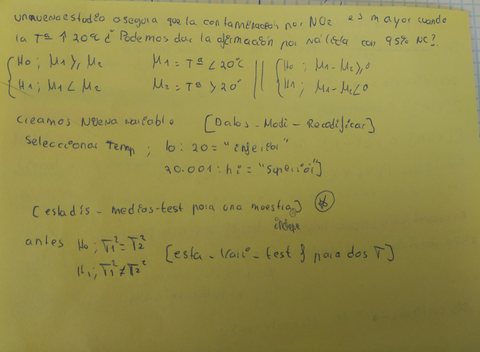 un nuevo estudio asegura que la contaminación por NO2 es mayor cuando
la Tª ↑ 20ºC ¿ Podemos dar la afirmación por válida con 95% NC?
{ H0 ; μ1 ≥ μ2   μ1 = Tª < 20ºC || { H0 ; μ1 - μ2 ≥ 0
H1 ; μ1 < μ2   μ2 = Tª > 20º   H1 ; μ1 - μ2 < 0
creamos nueva variable [Datos - Modi - Recodificar]
Seleccionar Temp ; lo : 20 = "inferior"
20.001 : hi = "Superior"]
[estadis - medias - test para una muestra]
antes H0 ; σ1² = σ2²
H1 ; σ1² ≠ σ2² [esta - Vari - test f para dos σ]